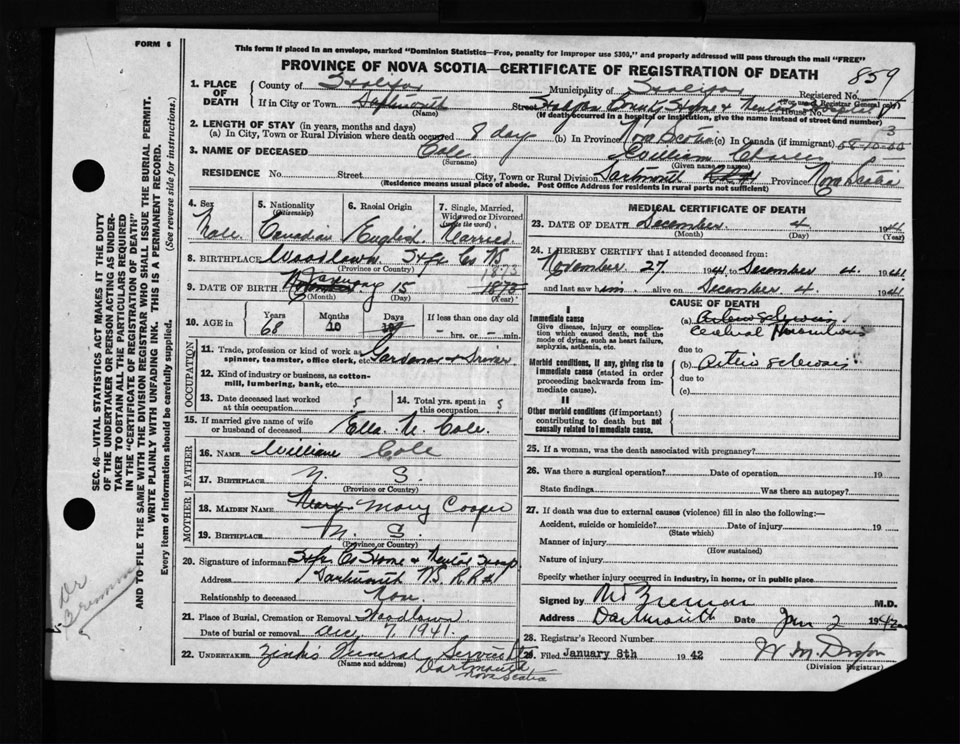 FORM 6
This form if placed in an envelope, marked "Dominion Statistics—Free, penalty for improper use $300," and properly addressed will pass through the mail "FREE"
PROVINCE OF NOVA SCOTIA—CERTIFICATE OF REGISTRATION OF DEATH
859
1. PLACE OF DEATH
County of Halifax
Municipality of Halifax
Registered No.
(For use of Registrar General only)
If in City or Town Dartmouth
(Name)
Street Halifax County Home & Mental Hospital House No.
(If death occurred in a hospital or institution, give the name instead of street and number)
2. LENGTH OF STAY (in years, months and days)
(a) In City, Town or Rural Division where death occurred 8 day (b) In Province Nova Scotia (c) In Canada (if immigrant)
3
68-10-
3. NAME OF DECEASED Cole William Charles
(Surname) (Given name or names)
RESIDENCE No. Street City, Town or Rural Division Dartmouth R.R. #1 Province Nova Scotia
(Residence means usual place of abode. Post Office Address for residents in rural parts not sufficient)
4. Sex Male
5. Nationality (Citizenship) Canadian
6. Racial Origin English
7. Single, Married, Widowed or Divorced (write the word) Married
8. BIRTHPLACE Woodlawn Hfx Co NS
(Province or Country)
1873
9. DATE OF BIRTH January 15 1873
(Month) (Day) (Year)
10. AGE in Years 68 Months 10 Days If less than one day old
— hrs. or — min.
OCCUPATION
11. Trade, profession or kind of work as spinner, teamster, office clerk, etc. Gardener & Driver
12. Kind of industry or business, as cotton-mill, lumbering, bank, etc.
13. Date deceased last worked at this occupation 5
14. Total yrs. spent in this occupation 5
15. If married give name of wife or husband of deceased Ella M. Cole.
FATHER
16. NAME William Cole
17. BIRTHPLACE N. S.
(Province or Country)
MOTHER
18. MAIDEN NAME Mary Mary Cooper
19. BIRTHPLACE N. S.
(Province or Country)
20. Signature of informant Hfx. Co Home & Mental Hosp.
Address Dartmouth NS R.R. #1
Relationship to deceased None
21. Place of Burial, Cremation or Removal Woodlawn
Date of burial or removal Dec, 7, 1941.
22. UNDERTAKER Zink's Funeral Service
(Name and address)
Dartmouth
Nova Scotia
MEDICAL CERTIFICATE OF DEATH
23. DATE OF DEATH December 4 1941
(Month) (Day) (Year)
24. I HEREBY CERTIFY that I attended deceased from:
November 27 1941 to December 4. 1941
and last saw him alive on December 4. 1941
CAUSE OF DEATH
I
Immediate cause
Give disease, injury or complication which caused death, not the mode of dying, such as heart failure, asphyxia, asthenia, etc.
(a)
Cerebral Hemorrhage
due to
Morbid conditions, if any, giving rise to immediate cause (stated in order proceeding backwards from immediate cause).
(b) Arterio Sclerosis
due to
(c)
II
Other morbid conditions (if important) contributing to death but not causally related to immediate cause.
25. If a woman, was the death associated with pregnancy?
26. Was there a surgical operation? Date of operation 19
State findings Was there an autopsy?
27. If death was due to external causes (violence) fill in also the following:—
Accident, suicide or homicide? Date of injury 19
(State which)
Manner of injury
(How sustained)
Nature of injury
Specify whether injury occurred in industry, in home, or in public place
Signed by M.D.
Address Dartmouth Date Jan 2 1942
28. Registrar's Record Number
29. Filed January 8th 19 42
(Division Registrar)
SEC. 46—VITAL STATISTICS ACT MAKES IT THE DUTY
OF THE UNDERTAKER OR PERSON ACTING AS UNDER-
TAKER TO OBTAIN ALL THE PARTICULARS REQUIRED
IN THE "CERTIFICATE OF REGISTRATION OF DEATH"
AND TO FILE THE SAME WITH THE DIVISION REGISTRAR WHO SHALL ISSUE THE BURIAL PERMIT.
WRITE PLAINLY WITH UNFADING INK. THIS IS A PERMANENT RECORD.
Every item of information should be carefully supplied. (See reverse side for instructions.)
Dr